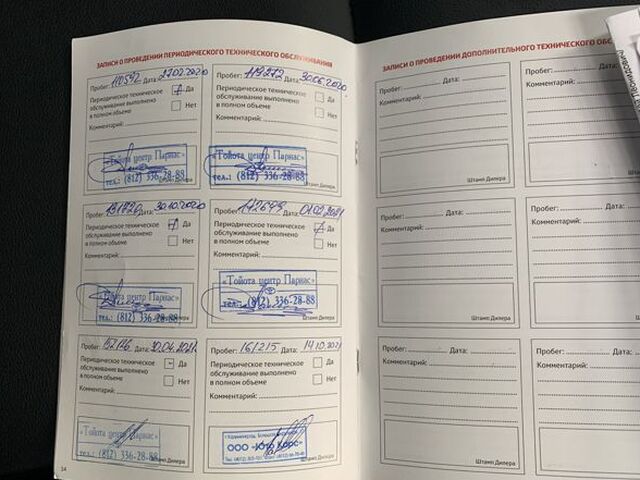 ЗАПИСИ О ПРОВЕДЕНИИ ПЕРИОДИЧЕСКОГО ТЕХНИЧЕСКОГО ОБСЛУЖИВАНИЯ
Пробег: 110592 Дата: 27.02.2020
Периодическое техническое
обслуживание выполнено
в полном объеме
Да
Нет
Комментарий:
«Тойота центр Парнас»
тел.: (812) 336-28-88
Штамп Дилера
Пробег: 119272 Дата: 30.06.2020
Периодическое техническое
обслуживание выполнено
в полном объеме
Да
Нет
Комментарий:
«Тойота центр Парнас»
тел.: (812) 336-28-88
Штамп Дилера
Пробег: Дата: 30.10.2020
Периодическое техническое
обслуживание выполнено
в полном объеме
Да
Нет
Комментарий:
«Тойота центр Парнас»
тел.: (812) 336-28-88
Штамп Дилера
Пробег: 142699 Дата: 01.02.2021
Периодическое техническое
обслуживание выполнено
в полном объеме
Да
Нет
Комментарий:
«Тойота центр Парнас»
тел.: (812) 336-28-88
Штамп Дилера
Пробег: Дата: 30.04.2021
Периодическое техническое
обслуживание выполнено
в полном объеме
Да
Нет
Комментарий:
«Тойота центр Парнас»
тел.: (812) 336-28-88
Штамп Дилера
Пробег: 161215 Дата: 14.10.2021
Периодическое техническое
обслуживание выполнено
в полном объеме
Да
Нет
Комментарий:
ООО «Юто Карс»
Штамп Дилера
14
ЗАПИСИ О ПРОВЕДЕНИИ ДОПОЛНИТЕЛЬНОГО ТЕХНИЧЕСКОГО ОБС
Пробег: Дата:
Комментарий:
Штамп Дилера
Пробег:
Комментарий:
Пробег: Дата:
Комментарий:
Штамп Дилера
Пробег:
Комментарий:
Пробег: Дата:
Комментарий:
Штамп Дилера
Пробег:
Комментарий: